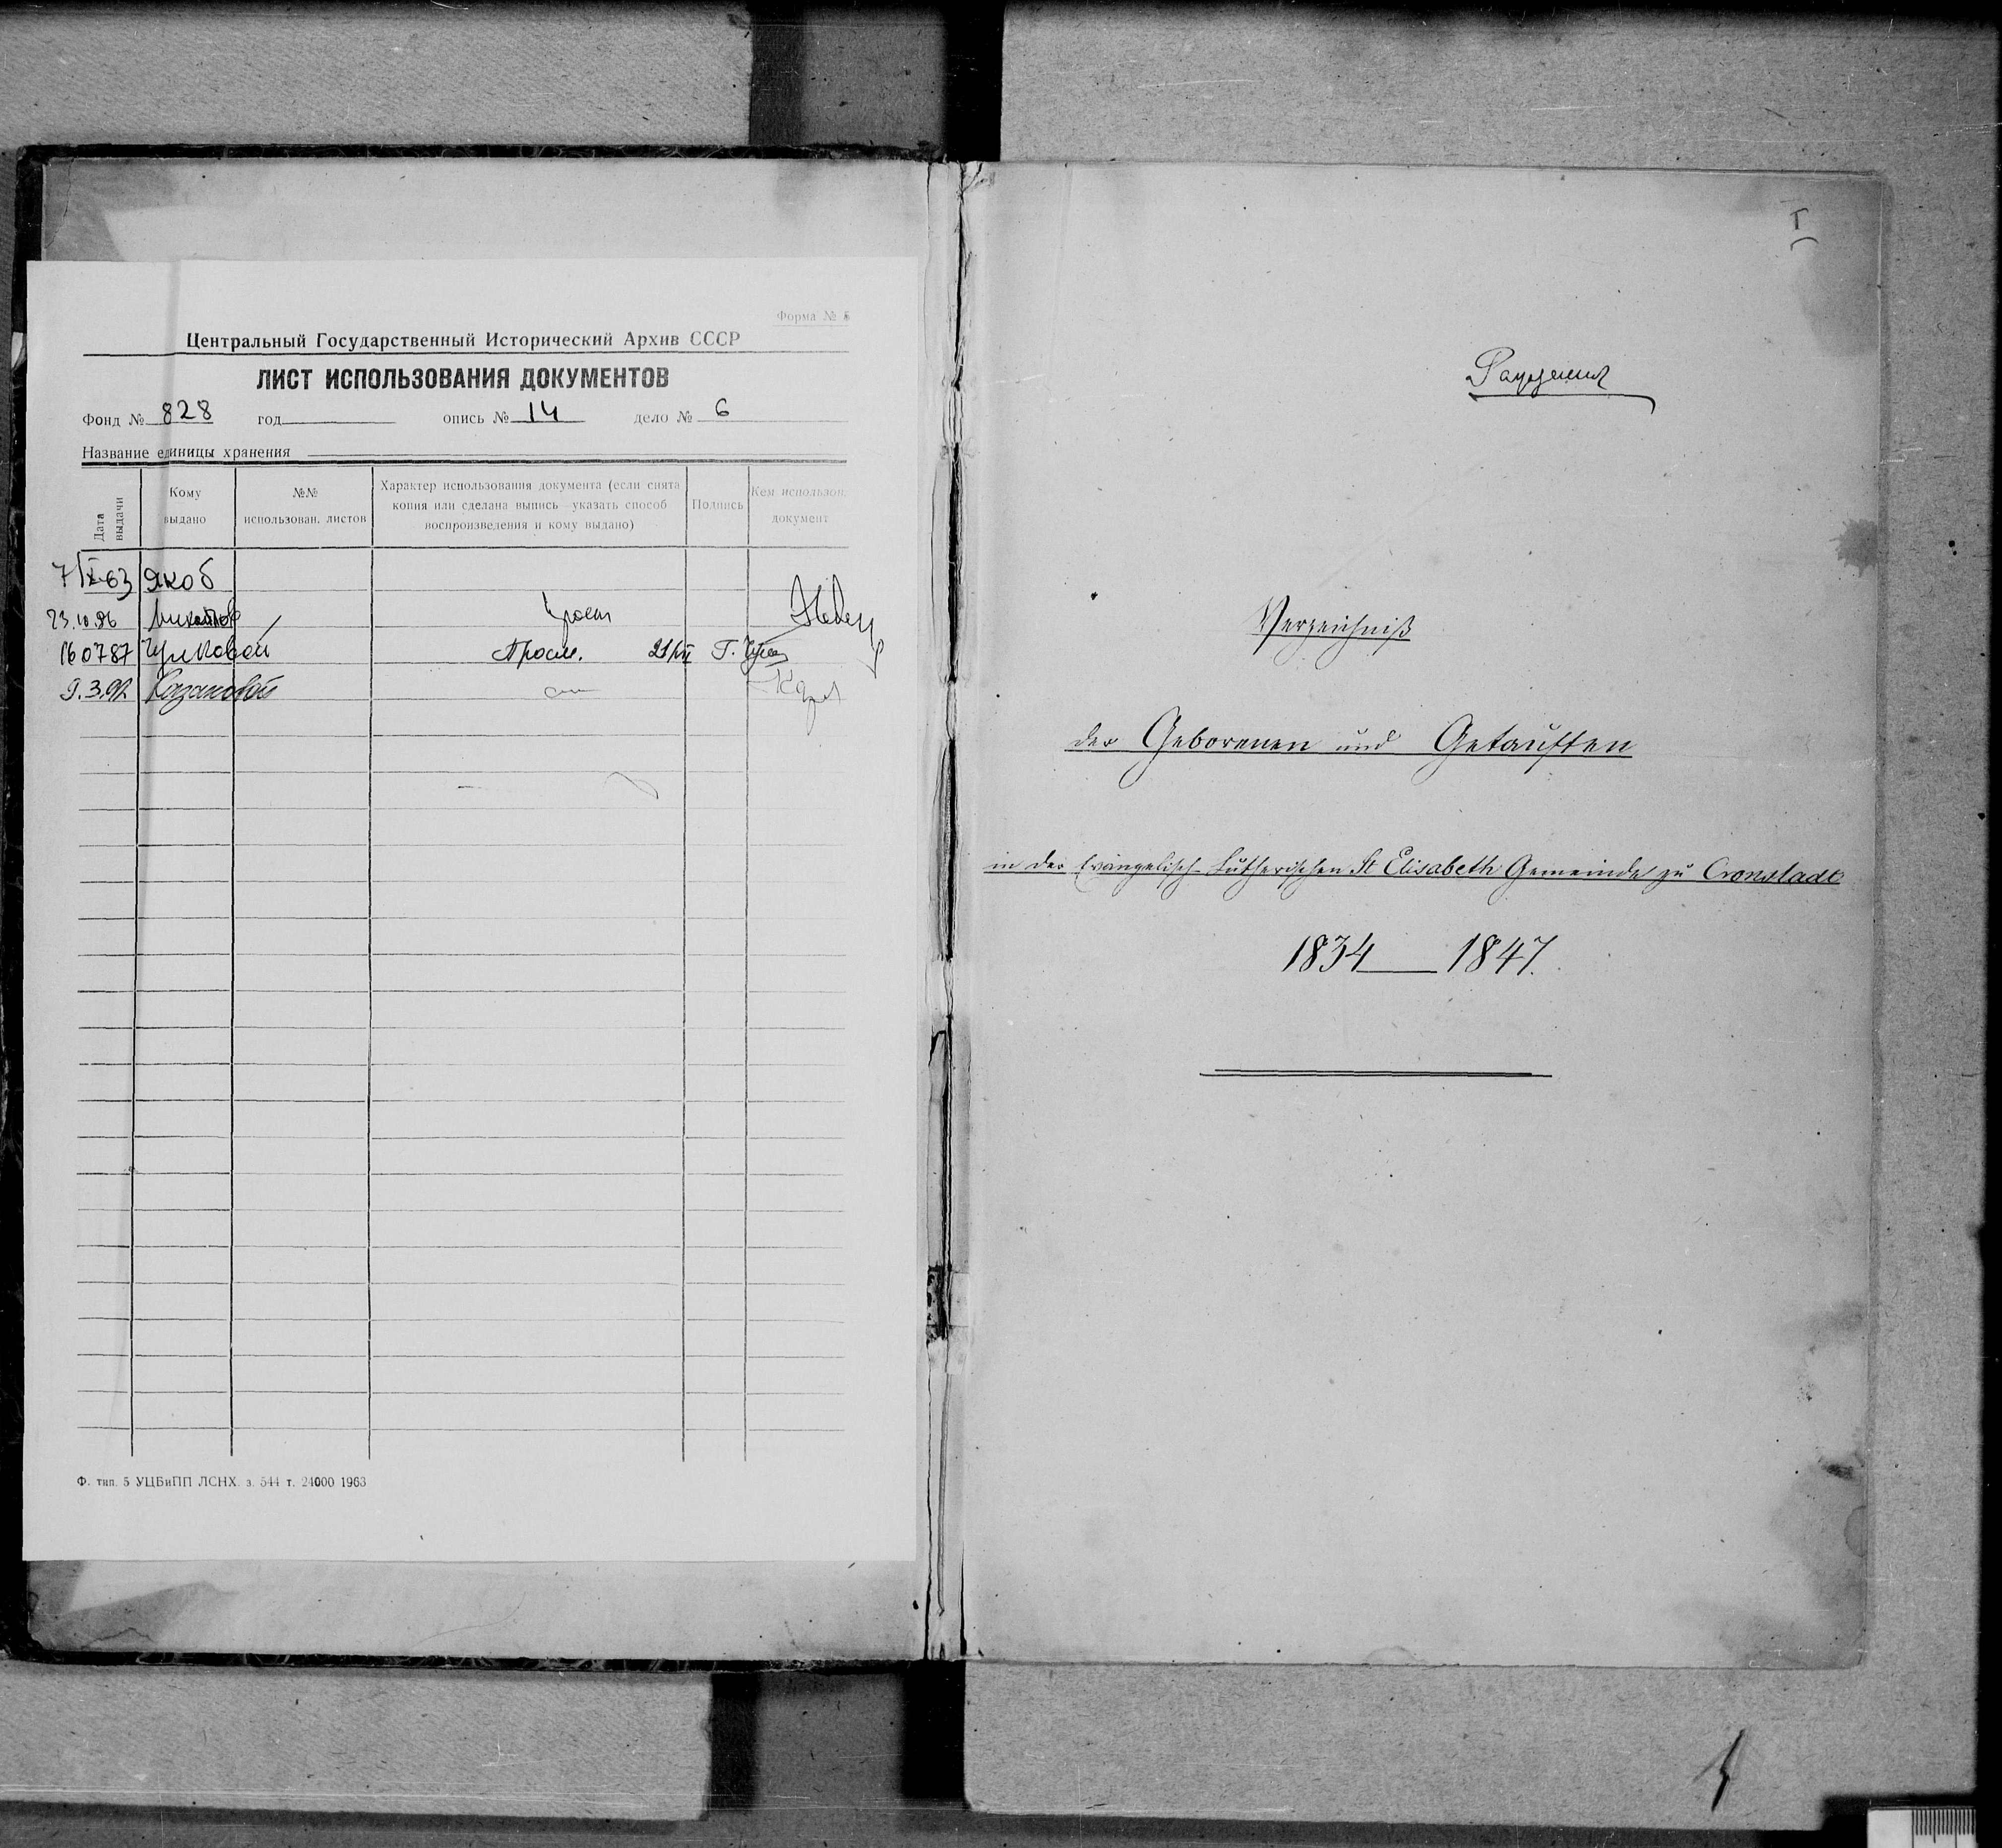 Форма № 5
Центральный Государственный Исторический Архив СССР
ЛИСТ ИСПОЛЬЗОВАНИЯ ДОКУМЕНТОВ
Фонд № 828 год опись № 14 дело № 6
Название единицы хранения
Дата выдачи
Кому выдано
№№ использован. листов
Характер использования документа (если снята копия или сделана выпись—указать способ воспроизведения и кому выдано)
Подпись
Кем использов. документ
7/X-63 Якоб
23.10.86
160787 Чулковой Просм. 21/VII Г.
9.3.92 Казаковой
Ф. тип. 5 УЦБиПП ЛСНХ. з. 544 т. 24000 1963
I
Verzeichniß
der Geborenen und Getauften
in der Evangelisch-Lutherischen St Elisabeth Gemeinde zu Cronstadt
1834 — 1847.